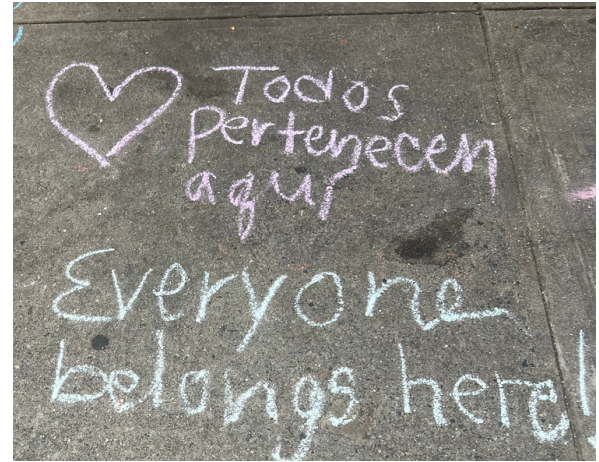 Todos
pertenecen
aquí
Everyone
belongs here!